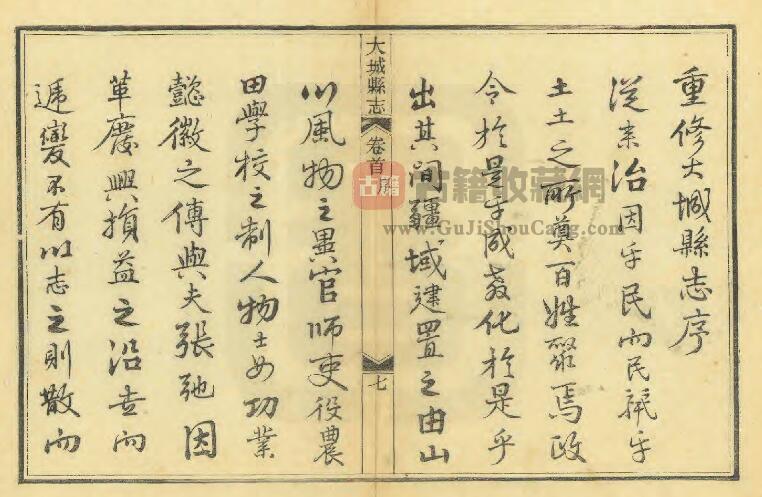 重修大城縣志序
從來治因乎民而民輒乎
土土之所奠百姓聚焉政
令於是乎成教化於是乎
出其間疆域建置之由山
大城縣志
卷首
序
七
川風物之異官師吏役農
田學校之制人物士女功業
懿徽之傳與夫張弛因
革廢興損益之沿革而
遞變不有以志之則散而
古籍
古籍收藏網
www.GuJiShouCang.com